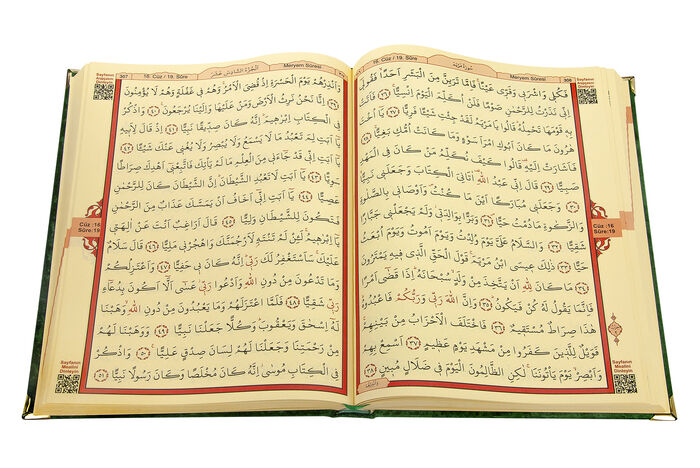 سورة مريم
16. Cüz / 19. Sûre
Meryem Sûresi
306
Sayfanın Arapçasını Dinleyin
فَكُلِي وَاشْرَبِي وَقَرِّي عَيْنًا فَاِمَّا تَرَيِنَّ مِنَ الْبَشَرِ اَحَدًا فَقُولِي
اِنِّي نَذَرْتُ لِلرَّحْمٰنِ صَوْمًا فَلَنْ اُكَلِّمَ الْيَوْمَ اِنْسِيًّا ﴿٢٦﴾ فَاَتَتْ
بِه۪ قَوْمَهَا تَحْمِلُهُ قَالُوا يَا مَرْيَمُ لَقَدْ جِئْتِ شَيْئًا فَرِيًّا ﴿٢٧﴾ يَا اُخْتَ
هٰرُونَ مَا كَانَ اَبُوكِ امْرَاَ سَوْءٍ وَمَا كَانَتْ اُمُّكِ بَغِيًّا ﴿٢٨﴾
فَاَشَارَتْ اِلَيْهِ قَالُوا كَيْفَ نُكَلِّمُ مَنْ كَانَ فِي الْمَهْدِ
صَبِيًّا ﴿٢٩﴾ قَالَ اِنِّي عَبْدُ اللّٰهِ اٰتَانِيَ الْكِتَابَ وَجَعَلَنِي نَبِيًّا
﴿٣٠﴾ وَجَعَلَنِي مُبَارَكًا اَيْنَ مَا كُنْتُ وَاَوْصَانِي بِالصَّلٰوةِ
وَالزَّكٰوةِ مَا دُمْتُ حَيًّا ﴿٣١﴾ وَبَرًّا بِوَالِدَتِي وَلَمْ يَجْعَلْنِي جَبَّارًا
شَقِيًّا ﴿٣٢﴾ وَالسَّلَامُ عَلَيَّ يَوْمَ وُلِدْتُ وَيَوْمَ اَمُوتُ وَيَوْمَ اُبْعَثُ
حَيًّا ﴿٣٣﴾ ذٰلِكَ عِيسَى ابْنُ مَرْيَمَ قَوْلَ الْحَقِّ الَّذِي فِيهِ يَمْتَرُونَ
﴿٣٤﴾ مَا كَانَ لِلّٰهِ اَنْ يَتَّخِذَ مِنْ وَلَدٍ سُبْحَانَهُ اِذَا قَضٰى اَمْرًا
فَاِنَّمَا يَقُولُ لَهُ كُنْ فَيَكُونُ ﴿٣٥﴾ وَاِنَّ اللّٰهَ رَبِّي وَرَبُّكُمْ فَاعْبُدُوهُ
هٰذَا صِرَاطٌ مُسْتَقِيمٌ ﴿٣٦﴾ فَاخْتَلَفَ الْاَحْزَابُ مِنْ بَيْنِهِمْ
فَوَيْلٌ لِلَّذِينَ كَفَرُوا مِنْ مَشْهَدِ يَوْمٍ عَظِيمٍ ﴿٣٧﴾ اَسْمِعْ بِهِمْ
وَاَبْصِرْ يَوْمَ يَأْتُونَنَا لٰكِنِ الظَّالِمُونَ الْيَوْمَ فِي ضَلَالٍ مُبِينٍ ﴿٣٨﴾
وَاَنْذِرْهُمْ
Cüz :16
Sûre:19
Sayfanın Mealini Dinleyin
الجزء السادس عشر
16. Cüz / 19. Sûre
Meryem Sûresi
307
Sayfanın Arapçasını Dinleyin
وَاَنْذِرْهُمْ يَوْمَ الْحَسْرَةِ اِذْ قُضِيَ الْاَمْرُ وَهُمْ فِي غَفْلَةٍ وَهُمْ لَا يُؤْمِنُونَ
﴿٣٩﴾ اِنَّا نَحْنُ نَرِثُ الْاَرْضَ وَمَنْ عَلَيْهَا وَاِلَيْنَا يُرْجَعُونَ ﴿٤٠﴾ وَاذْكُرْ
فِي الْكِتَابِ اِبْرٰهِيمَ اِنَّهُ كَانَ صِدِّيقًا نَبِيًّا ﴿٤١﴾ اِذْ قَالَ لِاَبِيهِ
يَا اَبَتِ لِمَ تَعْبُدُ مَا لَا يَسْمَعُ وَلَا يُبْصِرُ وَلَا يُغْنِي عَنْكَ شَيْئًا ﴿٤٢﴾
يَا اَبَتِ اِنِّي قَدْ جَاءَنِي مِنَ الْعِلْمِ مَا لَمْ يَأْتِكَ فَاتَّبِعْنِي اَهْدِكَ صِرَاطًا
سَوِيًّا ﴿٤٣﴾ يَا اَبَتِ لَا تَعْبُدِ الشَّيْطَانَ اِنَّ الشَّيْطَانَ كَانَ لِلرَّحْمٰنِ
عَصِيًّا ﴿٤٤﴾ يَا اَبَتِ اِنِّي اَخَافُ اَنْ يَمَسَّكَ عَذَابٌ مِنَ الرَّحْمٰنِ
فَتَكُونَ لِلشَّيْطَانِ وَلِيًّا ﴿٤٥﴾ قَالَ اَرَاغِبٌ اَنْتَ عَنْ اٰلِهَتِي
يَا اِبْرٰهِيمُ لَئِنْ لَمْ تَنْتَهِ لَاَرْجُمَنَّكَ وَاهْجُرْنِي مَلِيًّا ﴿٤٦﴾ قَالَ سَلَامٌ
عَلَيْكَ سَاَسْتَغْفِرُ لَكَ رَبِّي اِنَّهُ كَانَ بِي حَفِيًّا ﴿٤٧﴾ وَاَعْتَزِلُكُمْ
وَمَا تَدْعُونَ مِنْ دُونِ اللّٰهِ وَاَدْعُوا رَبِّي عَسٰى اَلَّا اَكُونَ بِدُعَاءِ
رَبِّي شَقِيًّا ﴿٤٨﴾ فَلَمَّا اعْتَزَلَهُمْ وَمَا يَعْبُدُونَ مِنْ دُونِ اللّٰهِ وَهَبْنَا
لَهُ اِسْحٰقَ وَيَعْقُوبَ وَكُلًّا جَعَلْنَا نَبِيًّا ﴿٤٩﴾ وَوَهَبْنَا لَهُمْ
مِنْ رَحْمَتِنَا وَجَعَلْنَا لَهُمْ لِسَانَ صِدْقٍ عَلِيًّا ﴿٥٠﴾ وَاذْكُرْ
فِي الْكِتَابِ مُوسٰى اِنَّهُ كَانَ مُخْلَصًا وَكَانَ رَسُولًا نَبِيًّا ﴿٥١﴾
Cüz :16
Sûre:19
Sayfanın Mealini Dinleyin